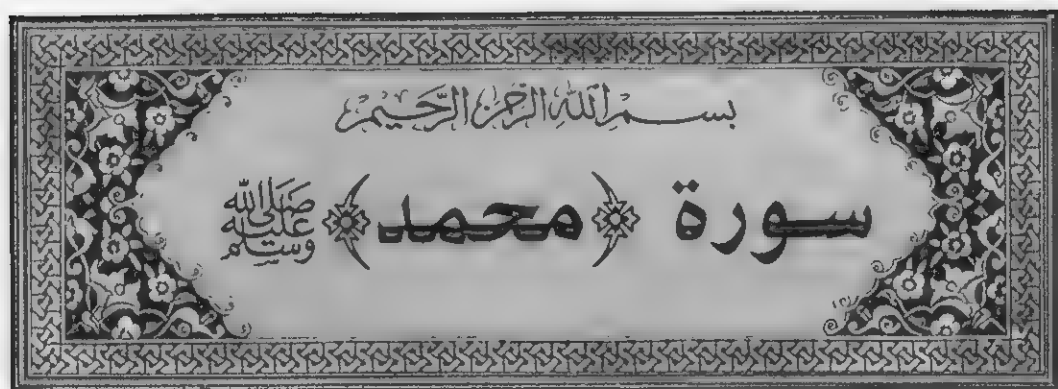 بسم الله الرحمن الرحيم
سورة ﴿محمد﴾ صلى الله عليه وسلم